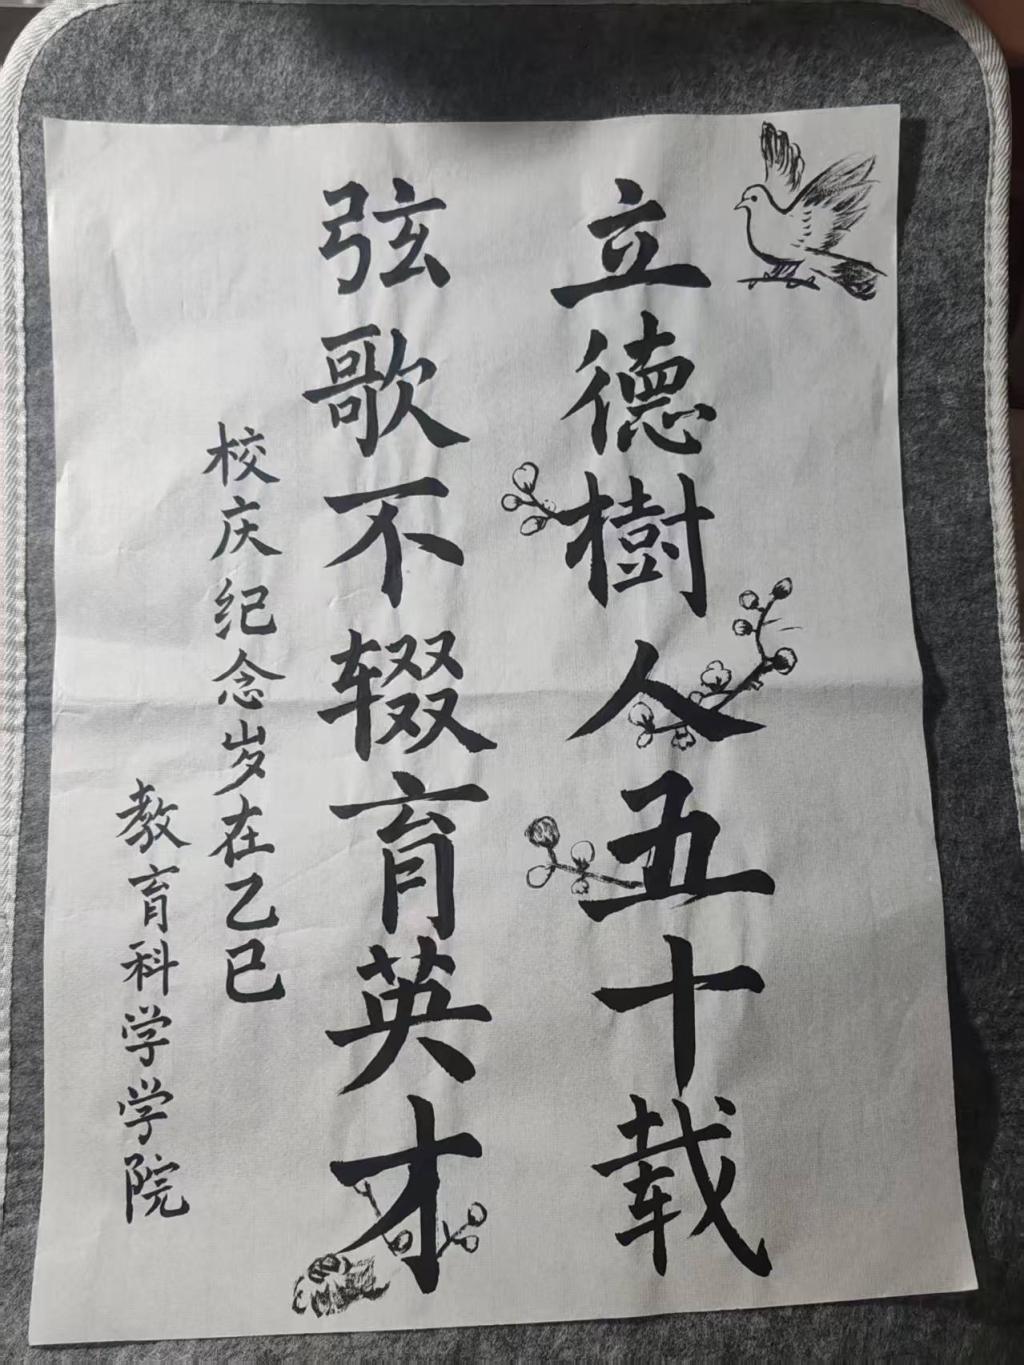 立德樹人五十载
弦歌不辍育英才
校庆纪念岁在乙巳
教育科学学院